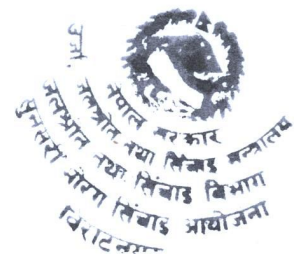 नेपाल सरकार
उर्जा जलश्रोत तथा सिंचाइ मन्त्रालय
जलश्रोत तथा सिंचाइ विभाग
सुनसरी मोरंग सिंचाइ आयोजना
विराटनगर